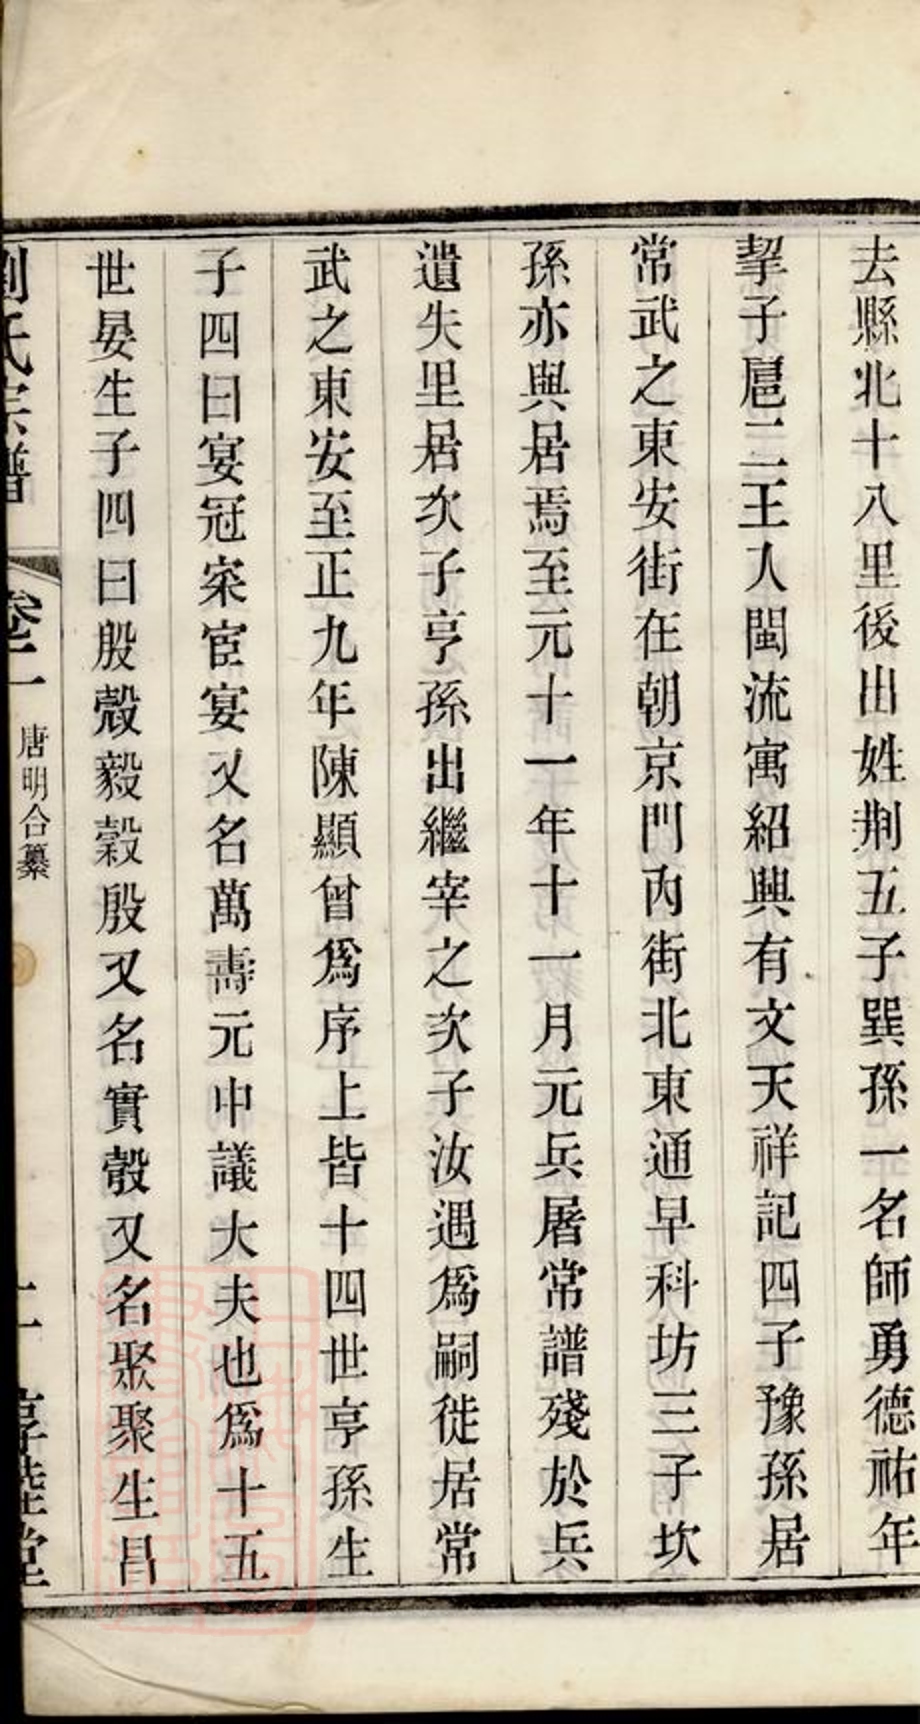 去縣北十八里後出姓荆五子巽孫一名師勇德祐年
挈子扈二王人閩流寓紹興有文天祥記四子豫孫居
常武之東安街在朝京門内街北東通早科坊三子坎
孫亦與居焉至元十一年十一月元兵屠常譜殘於兵
遺失里居次子亨孫出繼宰之次子汝遇爲嗣徙居常
武之東安至正九年陳顯曾爲序上皆十四世亨孫生
子四曰宴冠宷宦宴又名萬壽元中議大夫也爲十五
世晏生子四曰殷殼毅穀殷又名實彀又名聚聚生昌
劉氏宗譜
卷二
唐明合纂
二
享睦堂